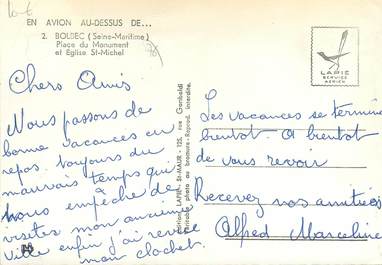 EN AVION AU-DESSUS DE...
2. BOLBEC (Seine-Maritime)
Place du Monument
et Eglise St-Michel
LAPIE
SERVICE
AERIEN
Chers Amis
Nous passons de
bonne vacances au
repos. toujours du
mauvais temps qui
nous empêche de
visites mon ancienne
ville enfin j'ai revue
mon clocher.
Edition LAPIE - St-MAUR - 125, rue Garibaldi
Véritable photo au bromure - Reprod. interdite.
Les vacances se termine
bientot - a bientot
de vous revoir
Recevez nos amitiés
Alfred Marceline